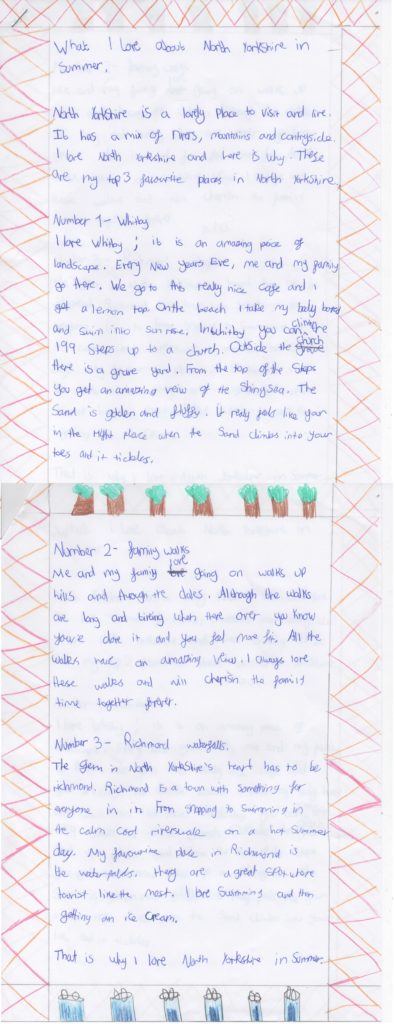 What I love about North Yorkshire in
Summer.
North Yorkshire is a lovely Place to visit and live.
It has a mix of rivers, mountains and contryside.
I love North Yorkshire and here is why. These
are my top 3 favourite places in North Yorkshire.
Number 1- Whitby
I love Whitby ; it is an amazing peice of
landscape. Every New years Eve, me and my family
go there. We go to this really nice cafe and I
get a lemon top. On the beach I take my body board
and swim into sun rise. In whitby you can climb the
199 Steps up to a church. Outside the church
there is a grave yard. From the top of the Steps
you get an amazing veiw of the Shiny Sea. The
Sand is golden and fluffy. It realy feels like your
in the right place when the Sand climbs into your
toes and it tickles.
Number 2- family walks
Me and my family love going on walks up
hills and through the dales. Although the walks
are long and tireing when there over you know
youve done it and you feel more fit. All the
walks have an amazing veiw. I always love
these walks and will cherish the family
time together forever.
Number 3- Richmond waterfalls.
The gem in North Yorkshire's heart has to be
richmond. Richmond is a town with Something for
everyone in it. From shopping to Swimming in
the calm cool on a hot Summer
day. My favourite place in Richmond is
the waterfalls. They are a great Spot where
tourist like the most. I love Swimming and then
getting an ice Cream.
That is why I love North Yorkshire in Summer.